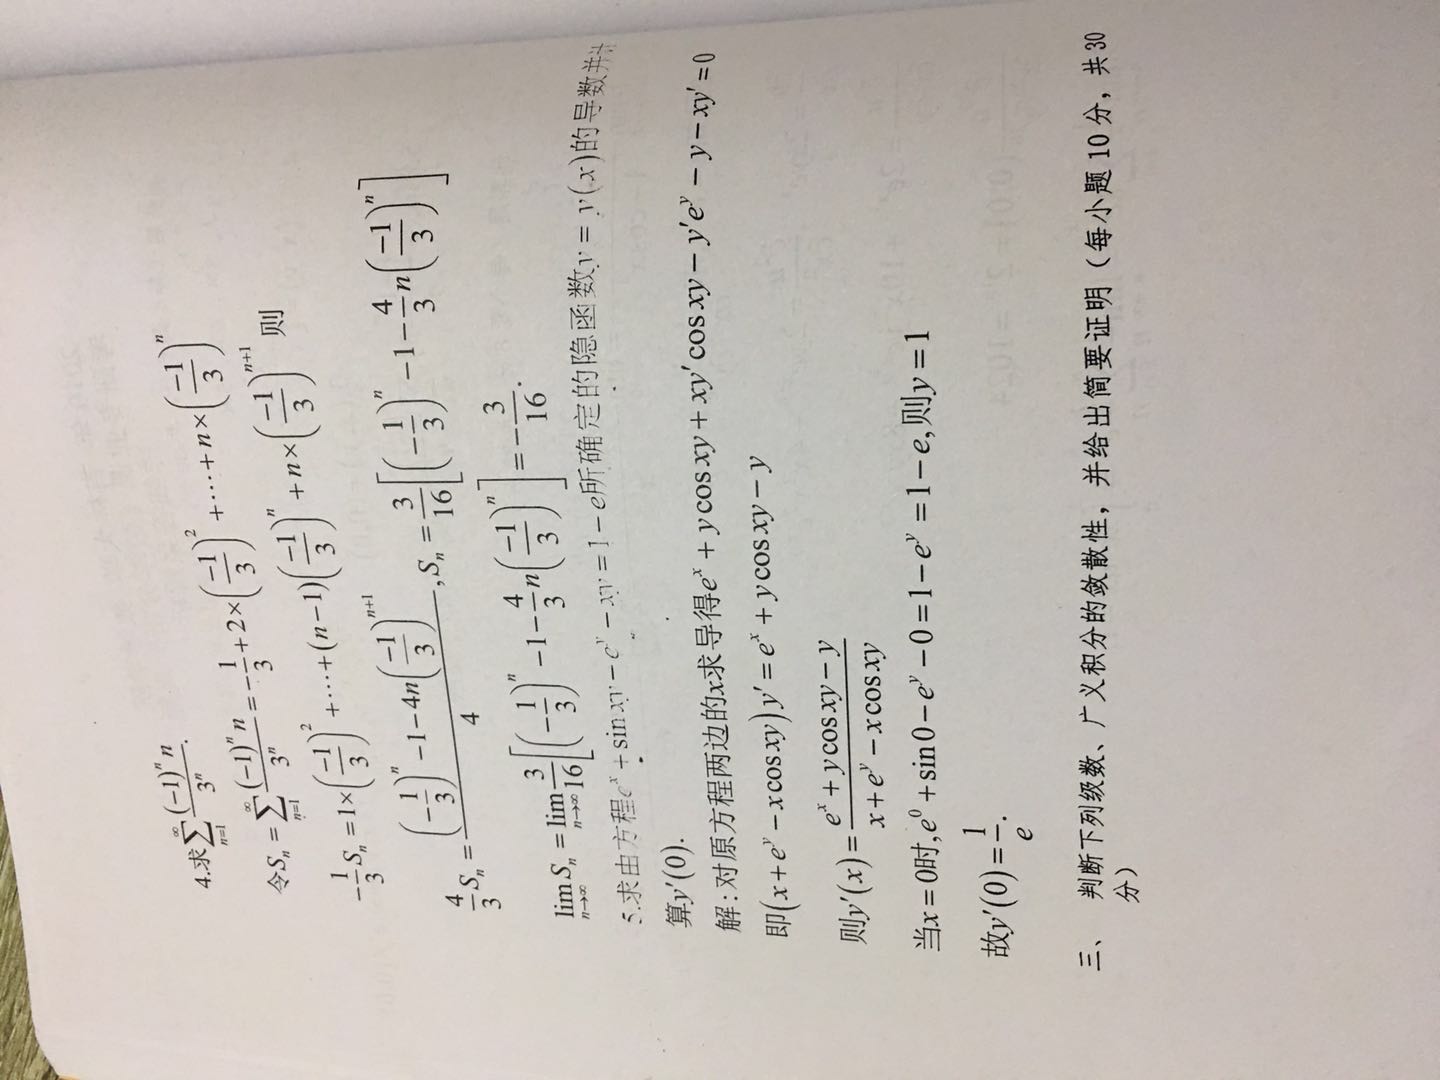 4.求∑_{n=1}^{∞} (-1)^n n / 3^n.
令S_n = ∑_{n=1}^{∞} (-1)^n n / 3^n = -1/3 + 2×(-1/3)^2 + ⋯ + n×(-1/3)^n
-1/3 S_n = 1×(-1/3)^2 + ⋯ + (n-1)(-1/3)^n + n×(-1/3)^{n+1} 则
4/3 S_n = ((-1/3)^n - 1 - 4n(-1/3)^{n+1}) / 4, S_n = 3/16 [(-1/3)^n - 1 - 4/3 n(-1/3)^n]
lim_{n→∞} S_n = lim_{n→∞} 3/16 [(-1/3)^n - 1 - 4/3 n(-1/3)^n] = -3/16.
5.求由方程e^x + sin xy - e^y - xy = 1 - e所确定的隐函数y = y(x)的导数并计
算y′(0).
解:对原方程两边的x求导得e^x + y cos xy + xy′ cos xy - y′e^y - y - xy′ = 0
即(x + e^y - x cos xy)y′ = e^x + y cos xy - y
则y′(x) = (e^x + y cos xy - y) / (x + e^y - x cos xy)
当x = 0时,e^0 + sin 0 - e^y - 0 = 1 - e^y = 1 - e,则y = 1
故y′(0) = 1/e.
三、 判断下列级数、广义积分的敛散性，并给出简要证明（每小题 10 分，共 30
分）